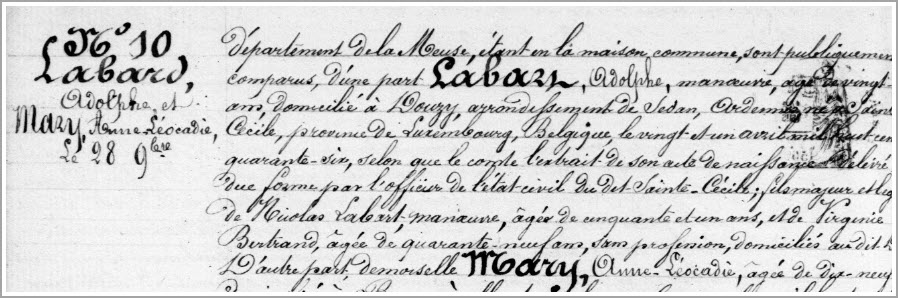 Nº 10
Labard,
Adolphe, et
Mary Anne-Léocadie,
Le 28 9bre
département de la Meuse, étant en la maison commune, sont publiquemen
comparus, d'une part Labart, Adolphe, manœuvre, âgé de vingt
ans, domicilié à Douzy, arrondissement de Sedan, Ardennes, né à Sainte
Cécile, province de Luxembourg, Belgique, le vingt et un avril mil huit cen
quarante-six, selon que le conste l'extrait de son acte de naissance délivré
due forme par l'officier de l'état civil du dit Sainte-Cécile; fils majeur et leg
de Nicolas Labart, manœuvre, âgé de cinquante et un ans, et de Virginie
Bertrand, âgée de quarante-neuf ans, sans profession, domiciliés au dit
D'autre part, demoiselle Mary, Anne-Léocadie, âgée de dix-neuf